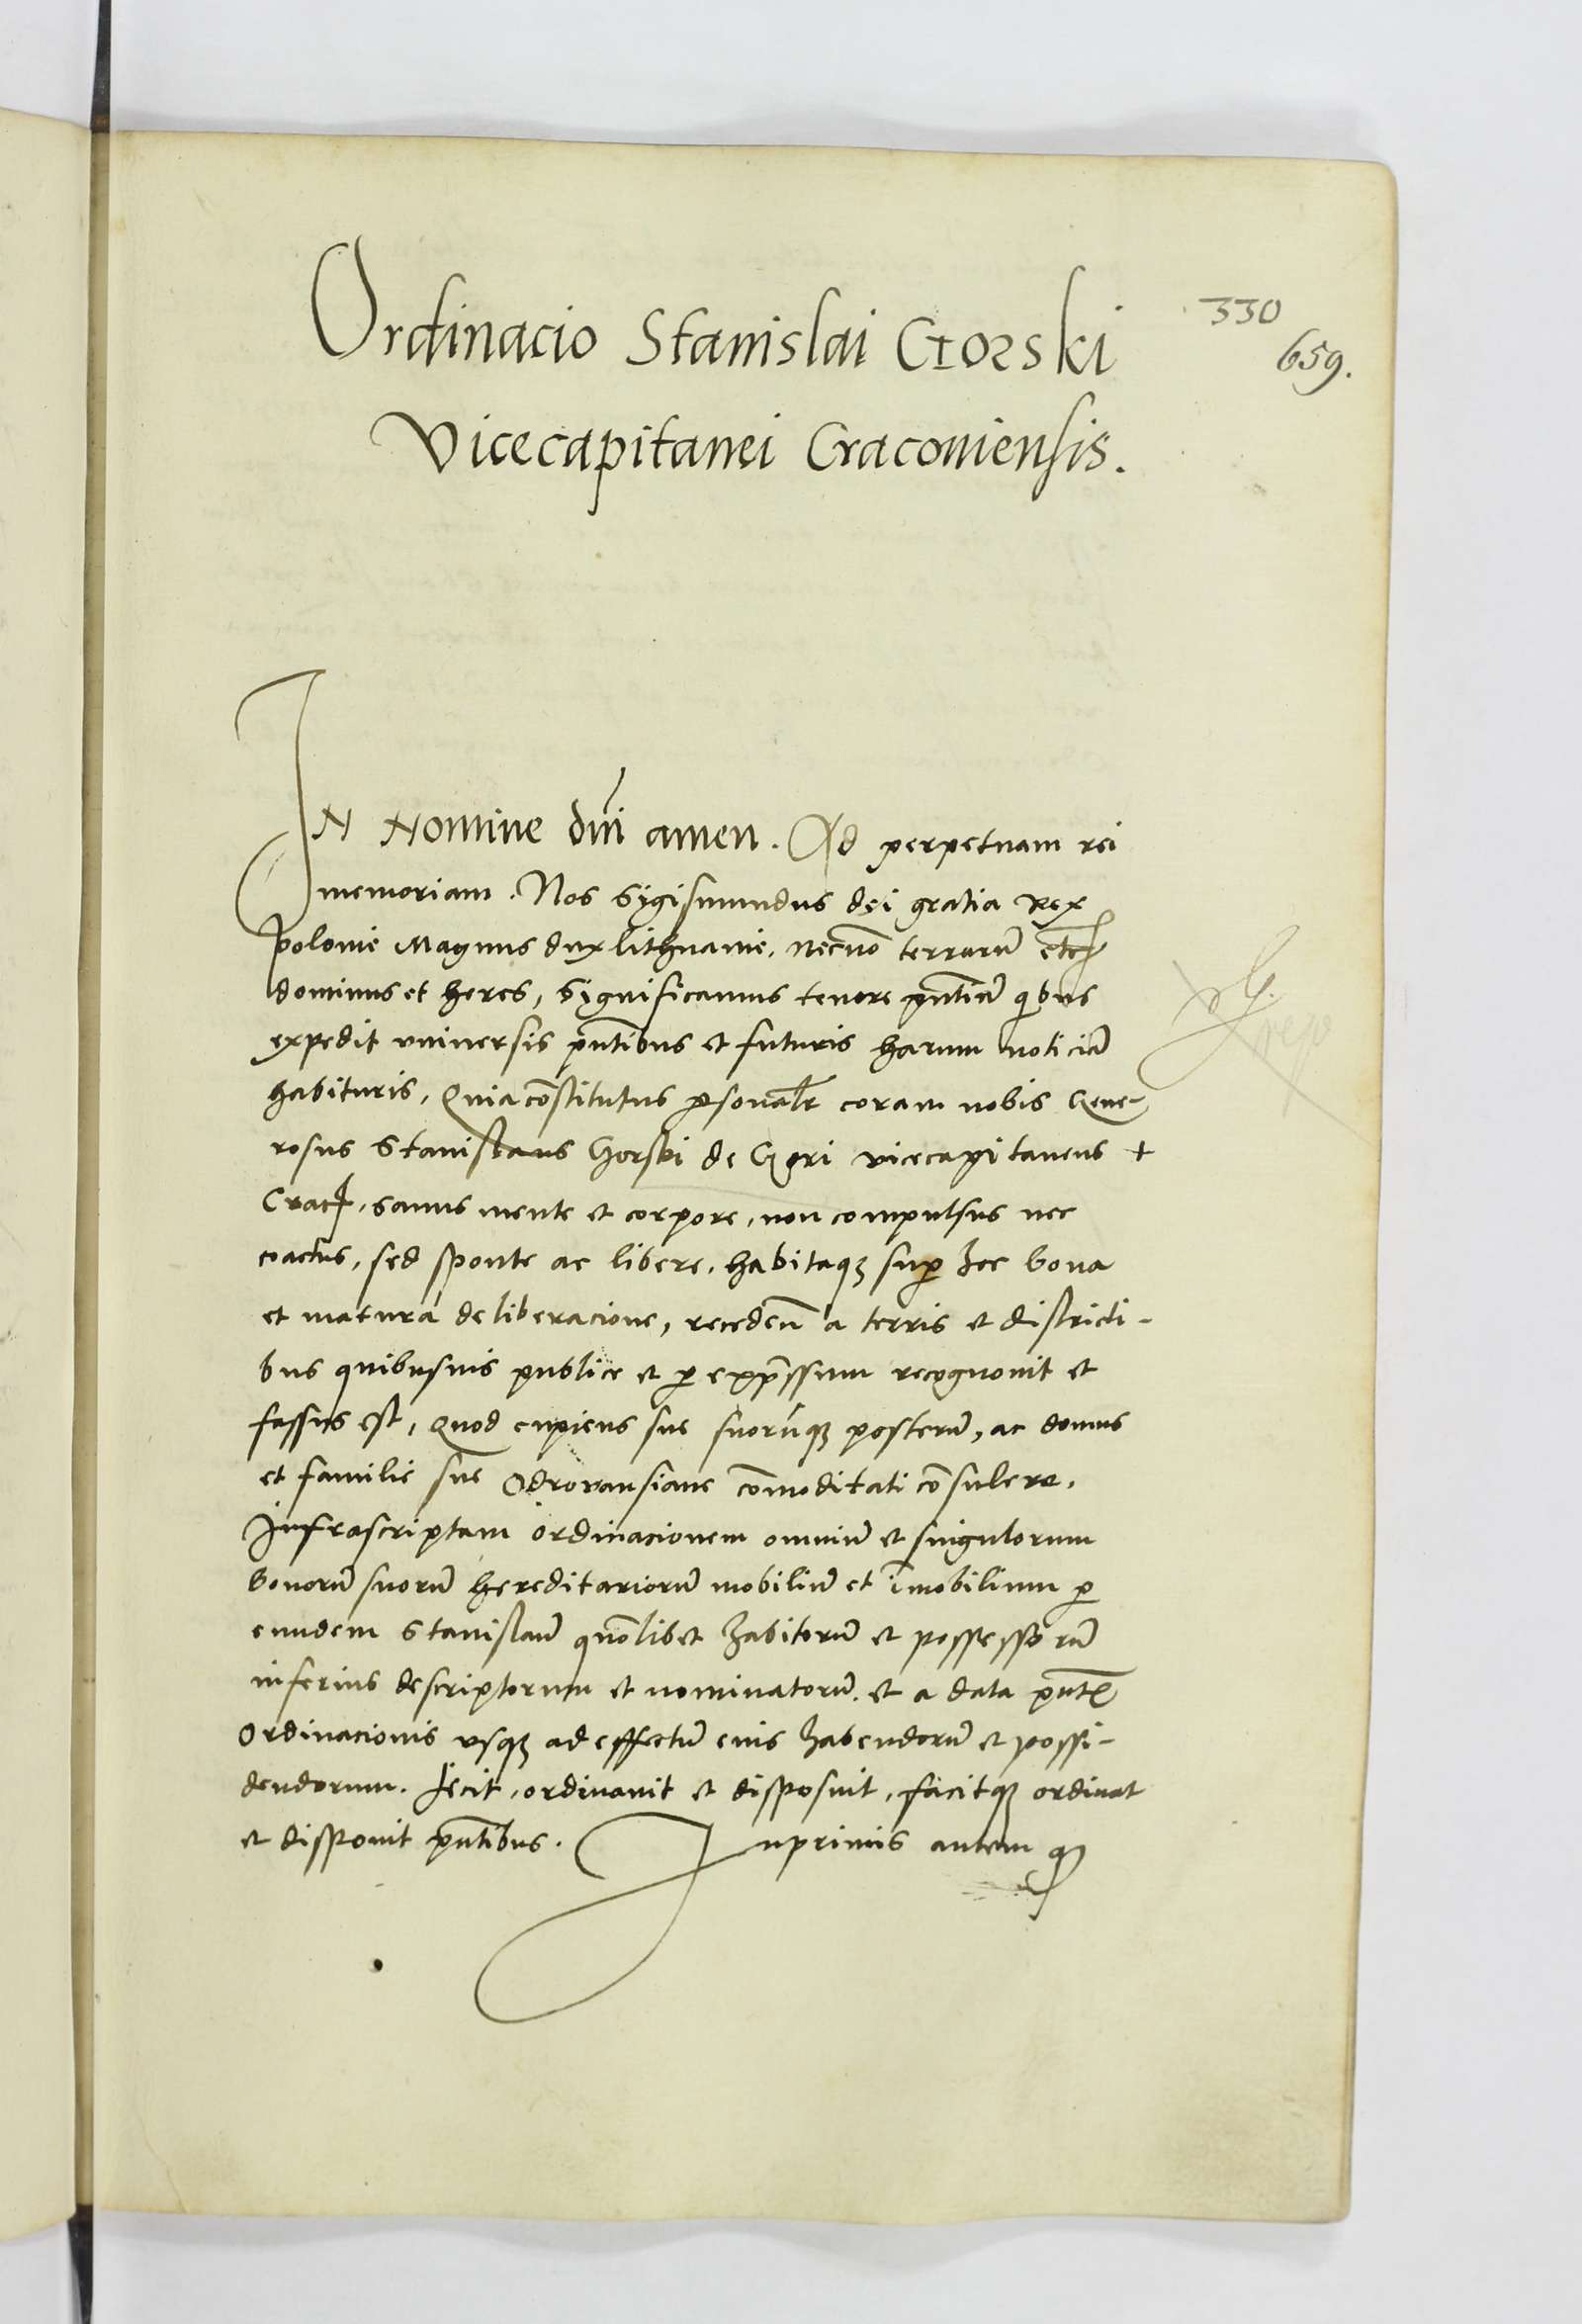 Ordinacio Stanislai Gorski
330
659.
Vicecapitanei Cracoviensis.
IN Nomine dñi amen. Ad perpetuam rei
memoriam. Nos Sigismundus dei gratia Rex
polonie Magnus dux lithuanie, necnõ terrarũ etc̃
dominus et heres, Significamus tenore pñtiũ qibus
expedit universis pñtibus et futuris harum noticiã
habituris, Quia cõstitutus psonalr̃ coram nobis Gene-
rosus Stanislaus Gorski de Gori vicecapitaneus +
Crac̃, sanus mente et corpore, non compulsus nec
coactus, sed sponte ac libere, habitaqꝫ sup hec bona
et matura deliberacione, recedeñ a terris et districti-
bus quibusvis publice et p exp̃ssum recognovit et
fassus est, Quod cupiens sue suorũqꝫ posterũ, ac domus
et familie sue Odrovansiane cõmoditati cõsulere,
Infrascriptam ordinacionem omniũ et singulorum
bonorũ suorũ hereditariorũ mobiliũ et im̃obilium p
eundem Stanislaũ quõlibet habitorũ et possessorũ
inferius descriptorum et nominatorũ, et a data pñt̃
Ordinacionis vsqꝫ ad effectũ eius habendorũ et possi-
dendorum. fecit, ordinavit et disposuit, facitqꝫ ordinat
et disponit pñtibus. Inprimis autem